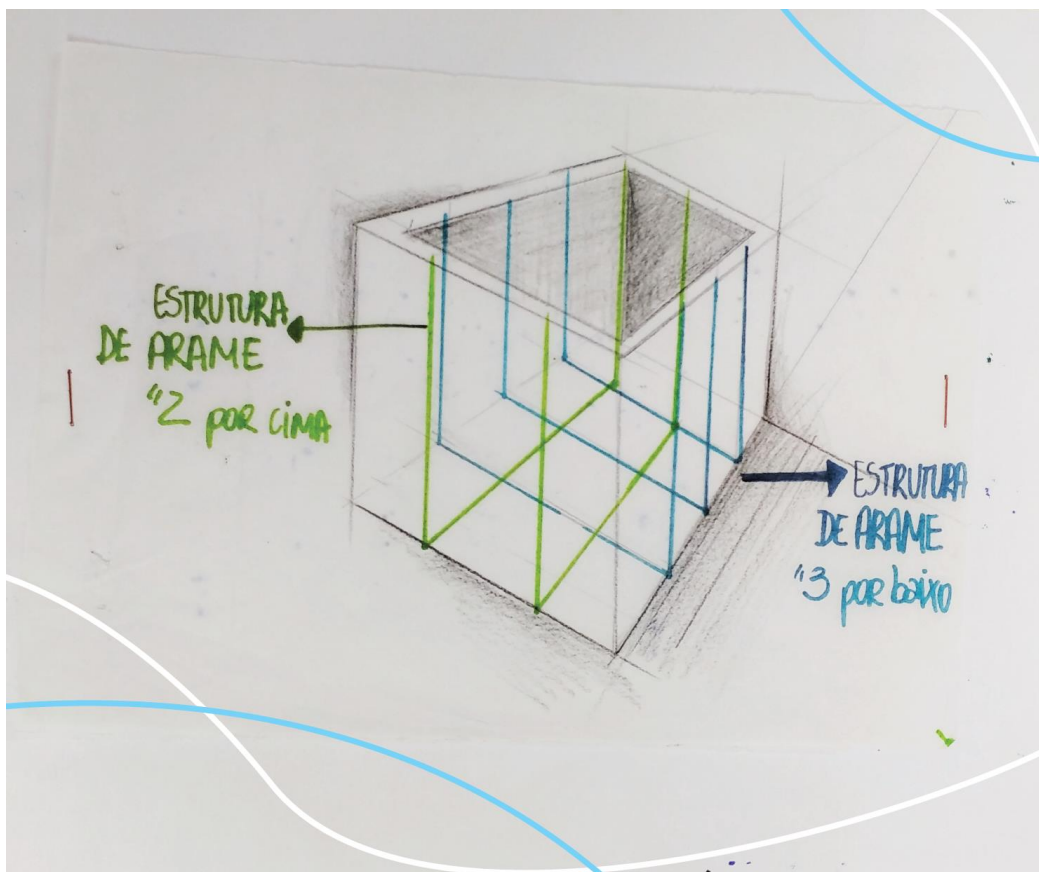 ESTRUTURA
DE ARAME
"2 por cima
ESTRUTURA
DE ARAME
"3 por baixo